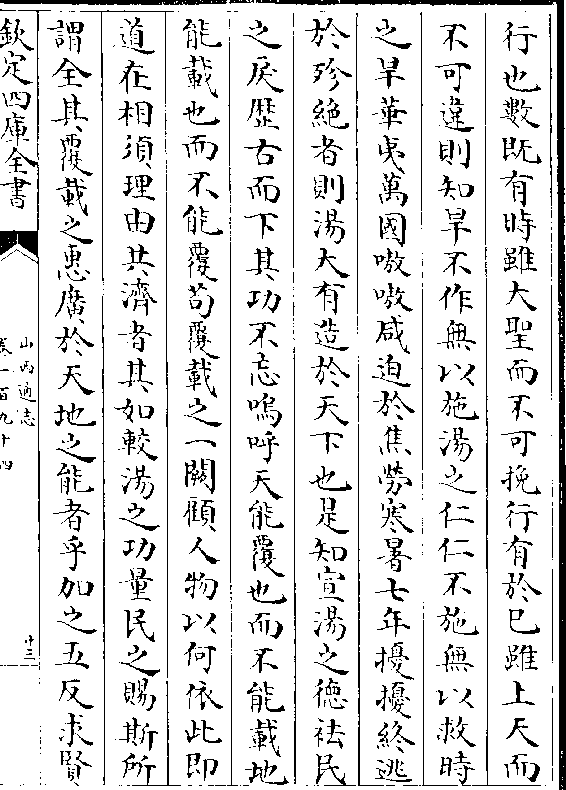 行也數既有時雖大聖而不可挽行有於已雖上天而
不可違則知旱不作無以施湯之仁仁不施無以救時
之旱華夷萬國嗷嗷咸迫於焦勞寒暑七年擾擾終逃
於殄絶者則湯大有造於天下也是知宣湯之德袪民
之戾歴古而下其功不忘嗚呼天能覆也而不能載地
能載也而不能覆苟覆載之一闕顧人物以何依此即
道在相須理由共濟者其如較湯之功量民之賜斯所
謂全其覆載之惠廣於天地之能者乎加之五反求賢
欽定四庫全書
山西通志
卷一百九十四
十三